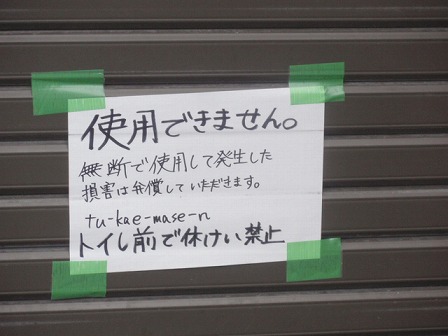 使用できません。
無断で使用して発生した
損害は弁償していただきます。
tu-kae-mase-n
トイレ前で休けい禁止